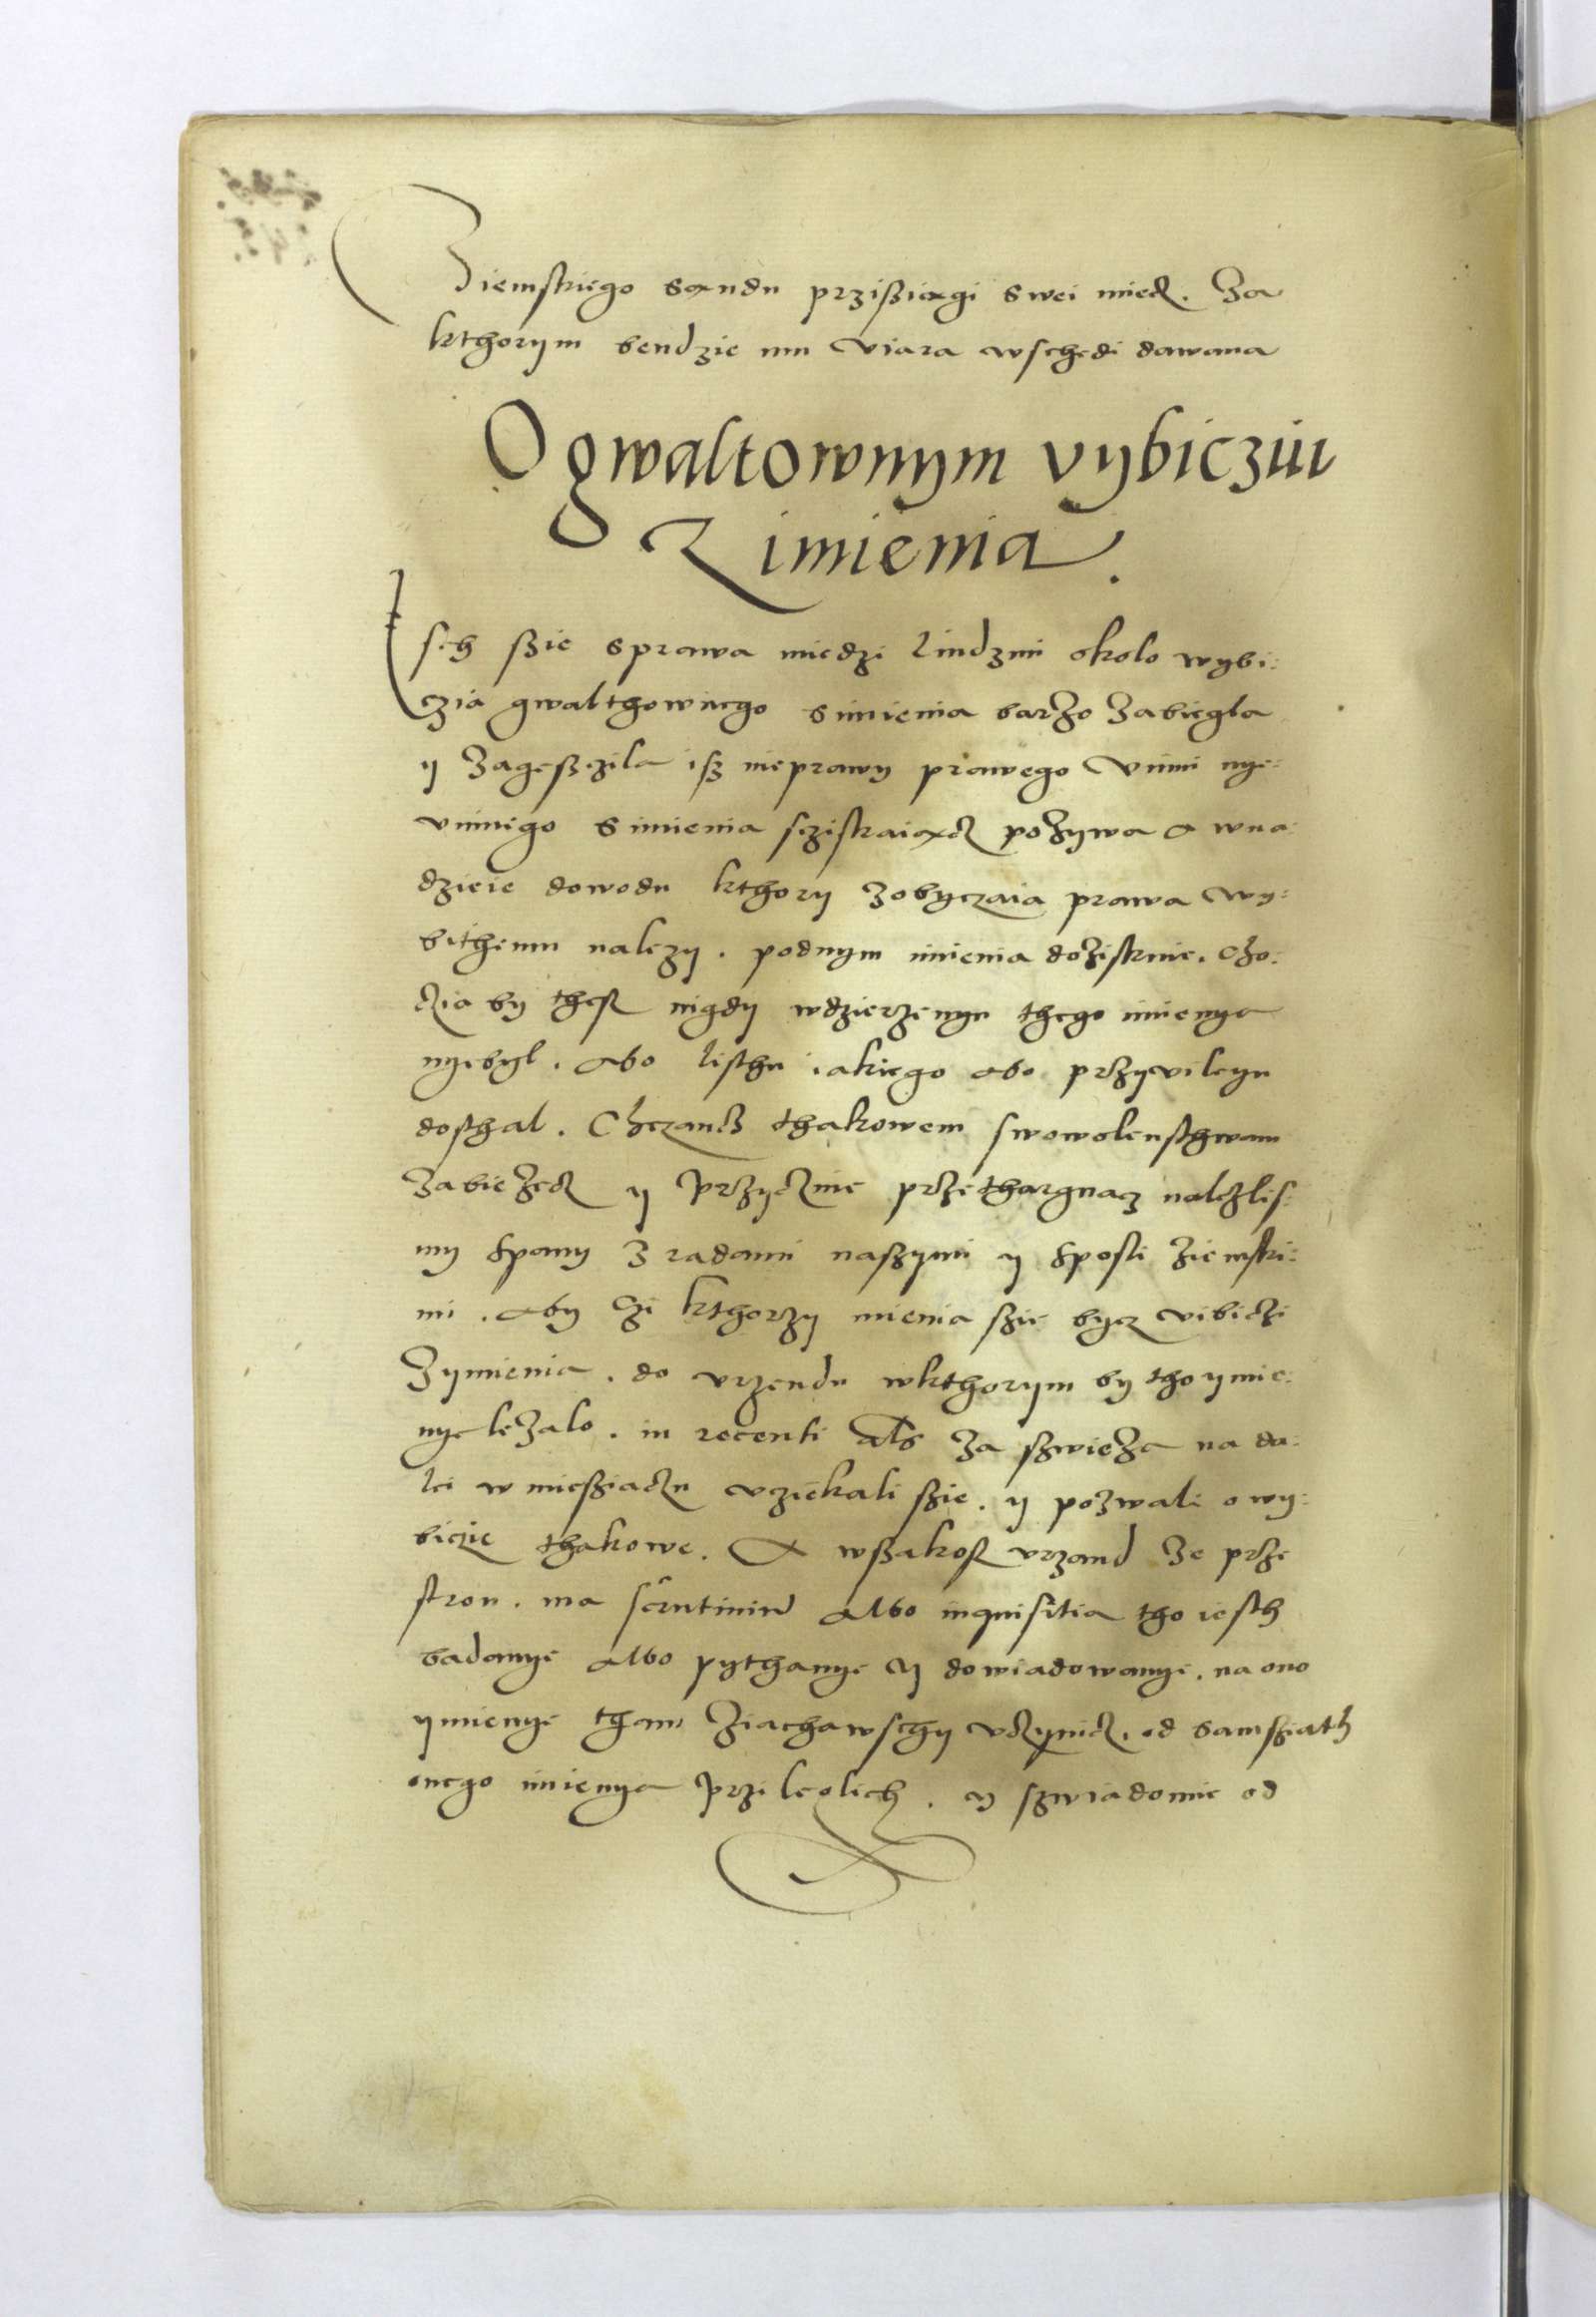 Ziemskiego sandu przisziągi swei miecz. Za
kthorym bendzie mu viara wschędi dawana
O gwaltownym vybicziu
Z imienia.
Isch szie sprawa miedzi liudzmi okolo wybi:
czia gwalthownego simienia barzo zabiegla
y zagęszczila isz nieprawy prawego vinni nye:
vinnego simienia sczistraiącz pozywa a wna:
dzieie dowodu kthory zobyczaia prawa wy:
bithemu nalezy. podnym imienia dozistnie. cho:
czia by thesz nigdy wdzierzenyu thego imienya
nyebyl. abo listhu iakiego abo przyvileyu
dosthal. Chczancz thakowem swowolensthwam
zabiezecz y przyczinie przethargnacz nalezlis:
my spany z radami naszymi y sposli ziemski:
mi. aby czi kthorzy mienia szie bycz vibiczi
Zymienia. do vrzendu wkthorym by tho ymie:
nye lezalo. in recenti als za szwieza na da:
lei w miesziaczu vziekali szie. y pozwali o wy:
biczie thakowe. A wszakosz vrzand ze prze
stron. ma scrutiniu albo inquisitia tho iesth
badanye albo pythanye y dowiadowanye. na ono
ymienye tham ziachawschy vczynicz. od samsziath
onego imienya przileglich. y szwiadomie od